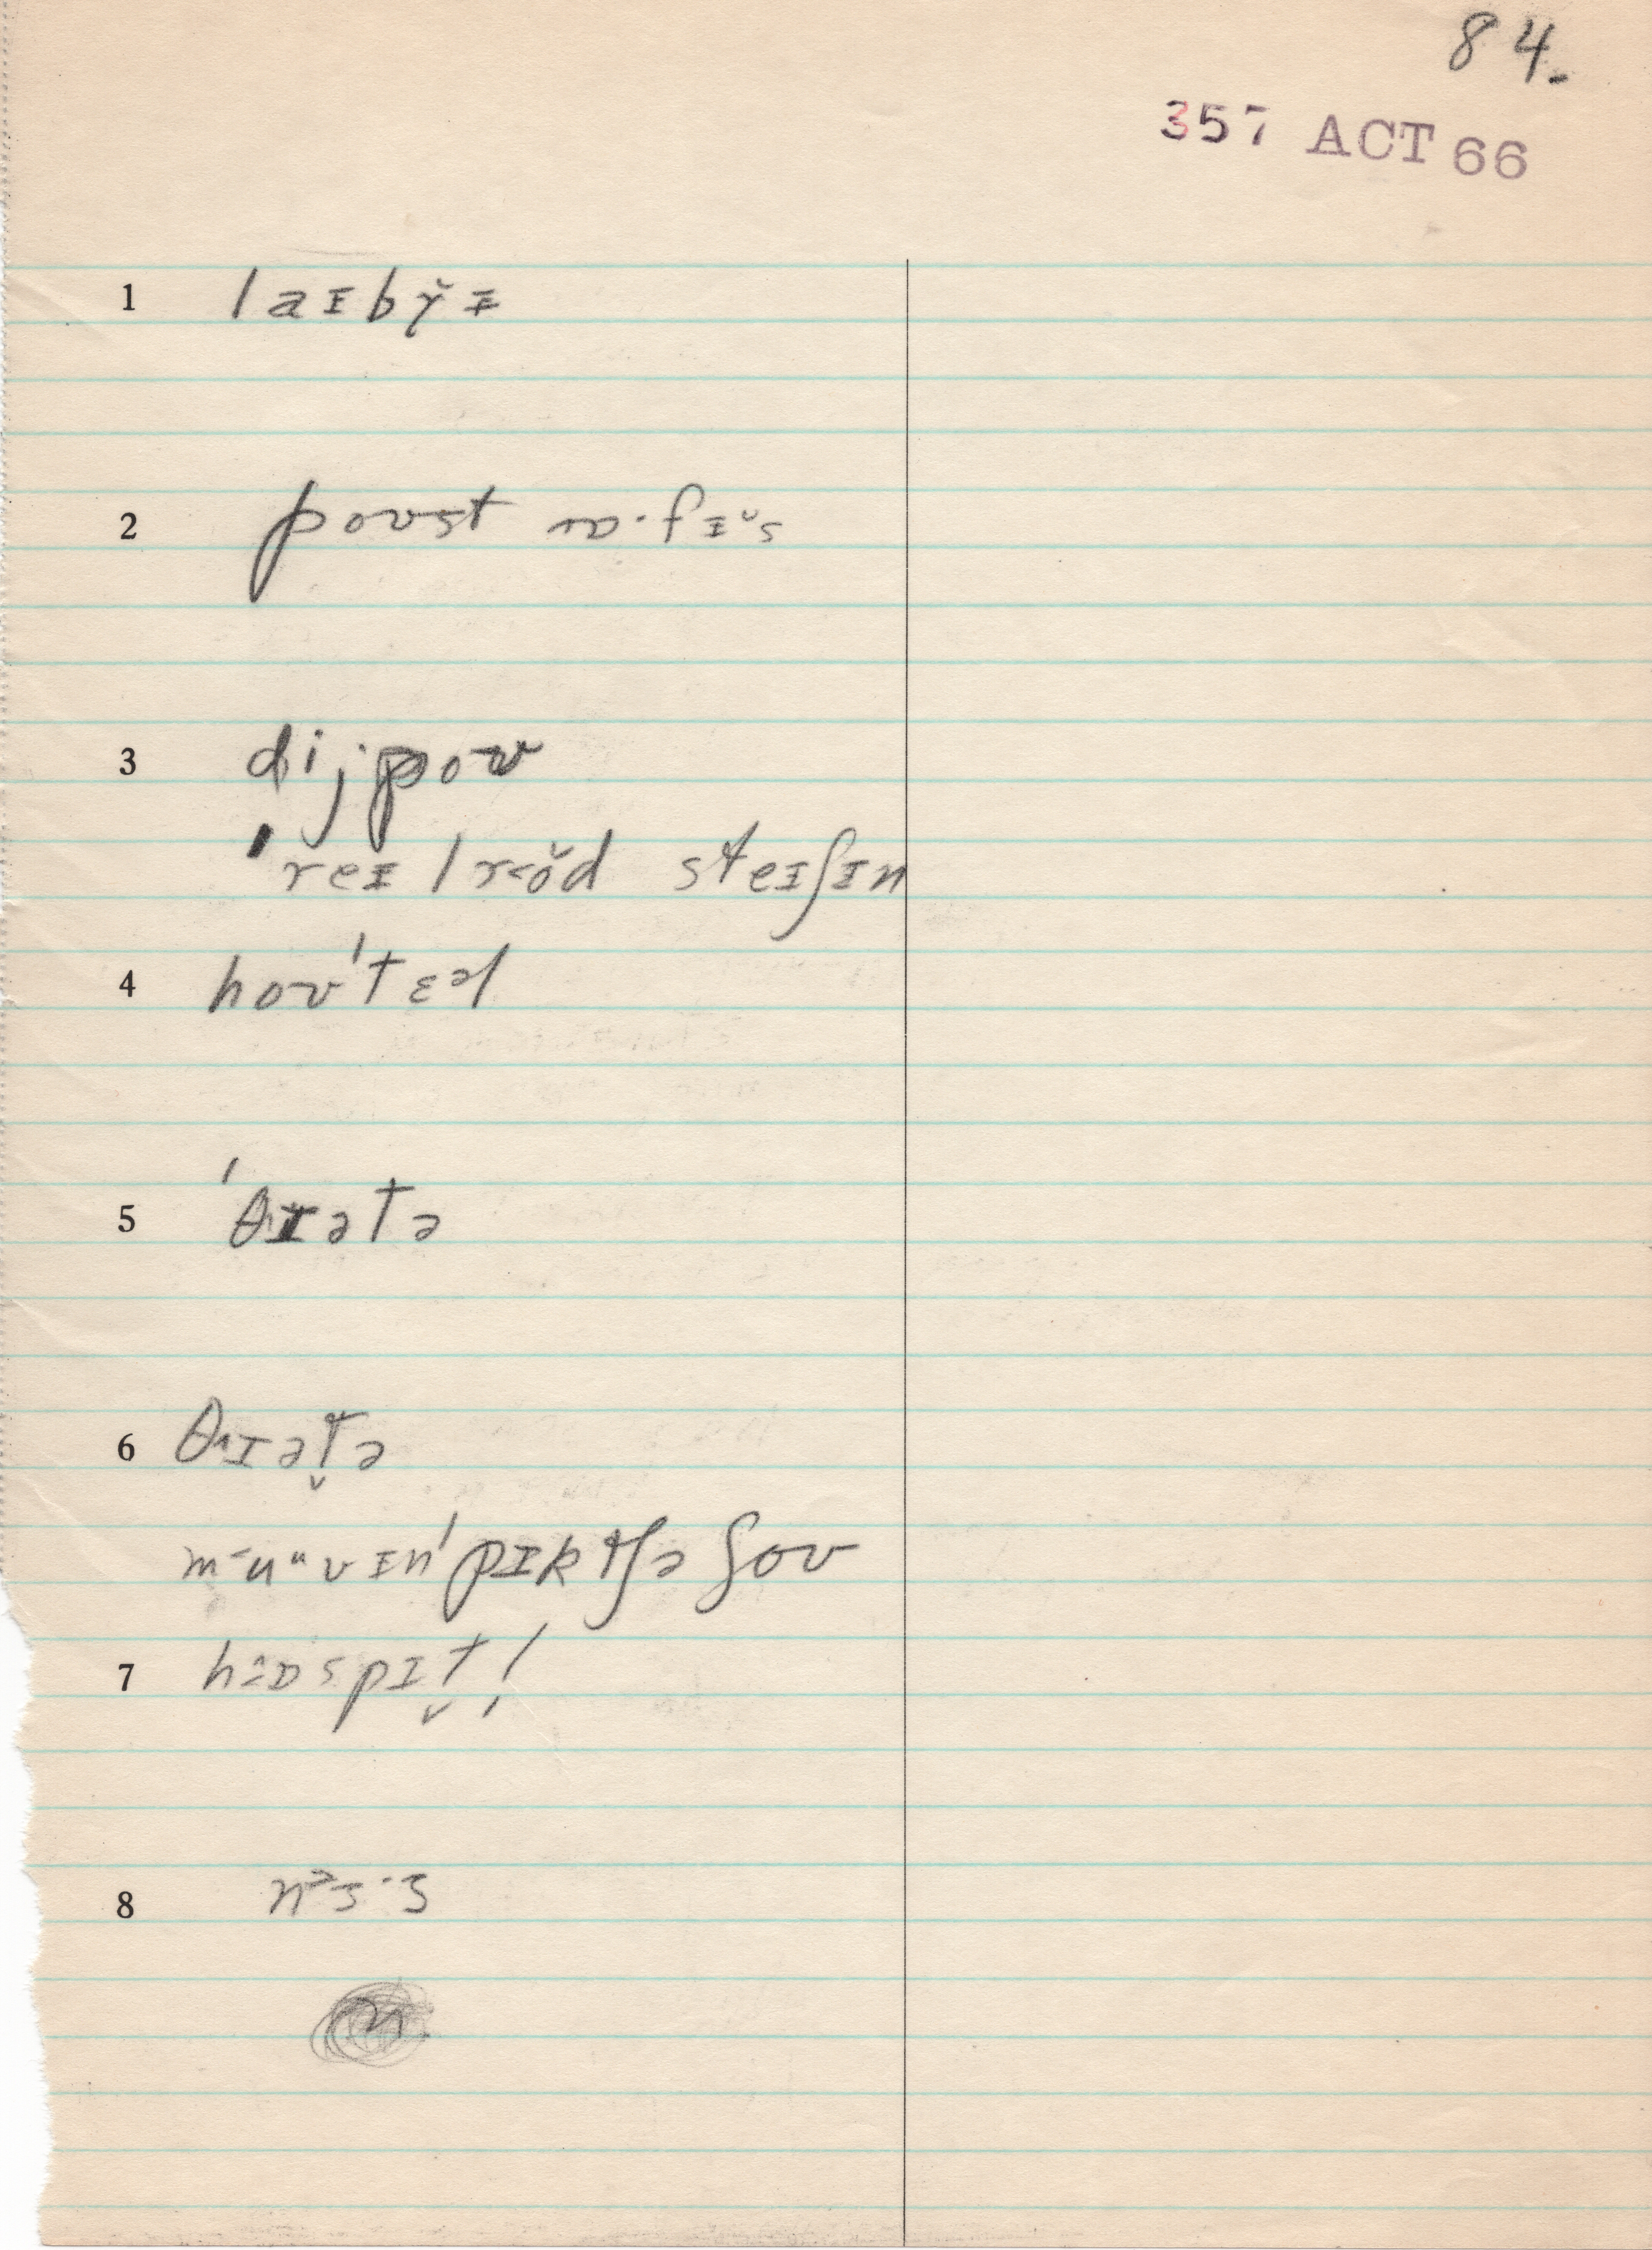 84.
357 ACT 66
1 laɪbɤ̆ɪ
2 poʊst ɒ·fɪ˘s
3 dijpoʊ
ˈreɪlroŏd steɪʃɪn
4 hoʊˈtɛəl
5 ˈθɪətə
6 θɪət̬ə
ˈpɪktʃə ʃoʊ
7 hɒspɪt̬l̩
8